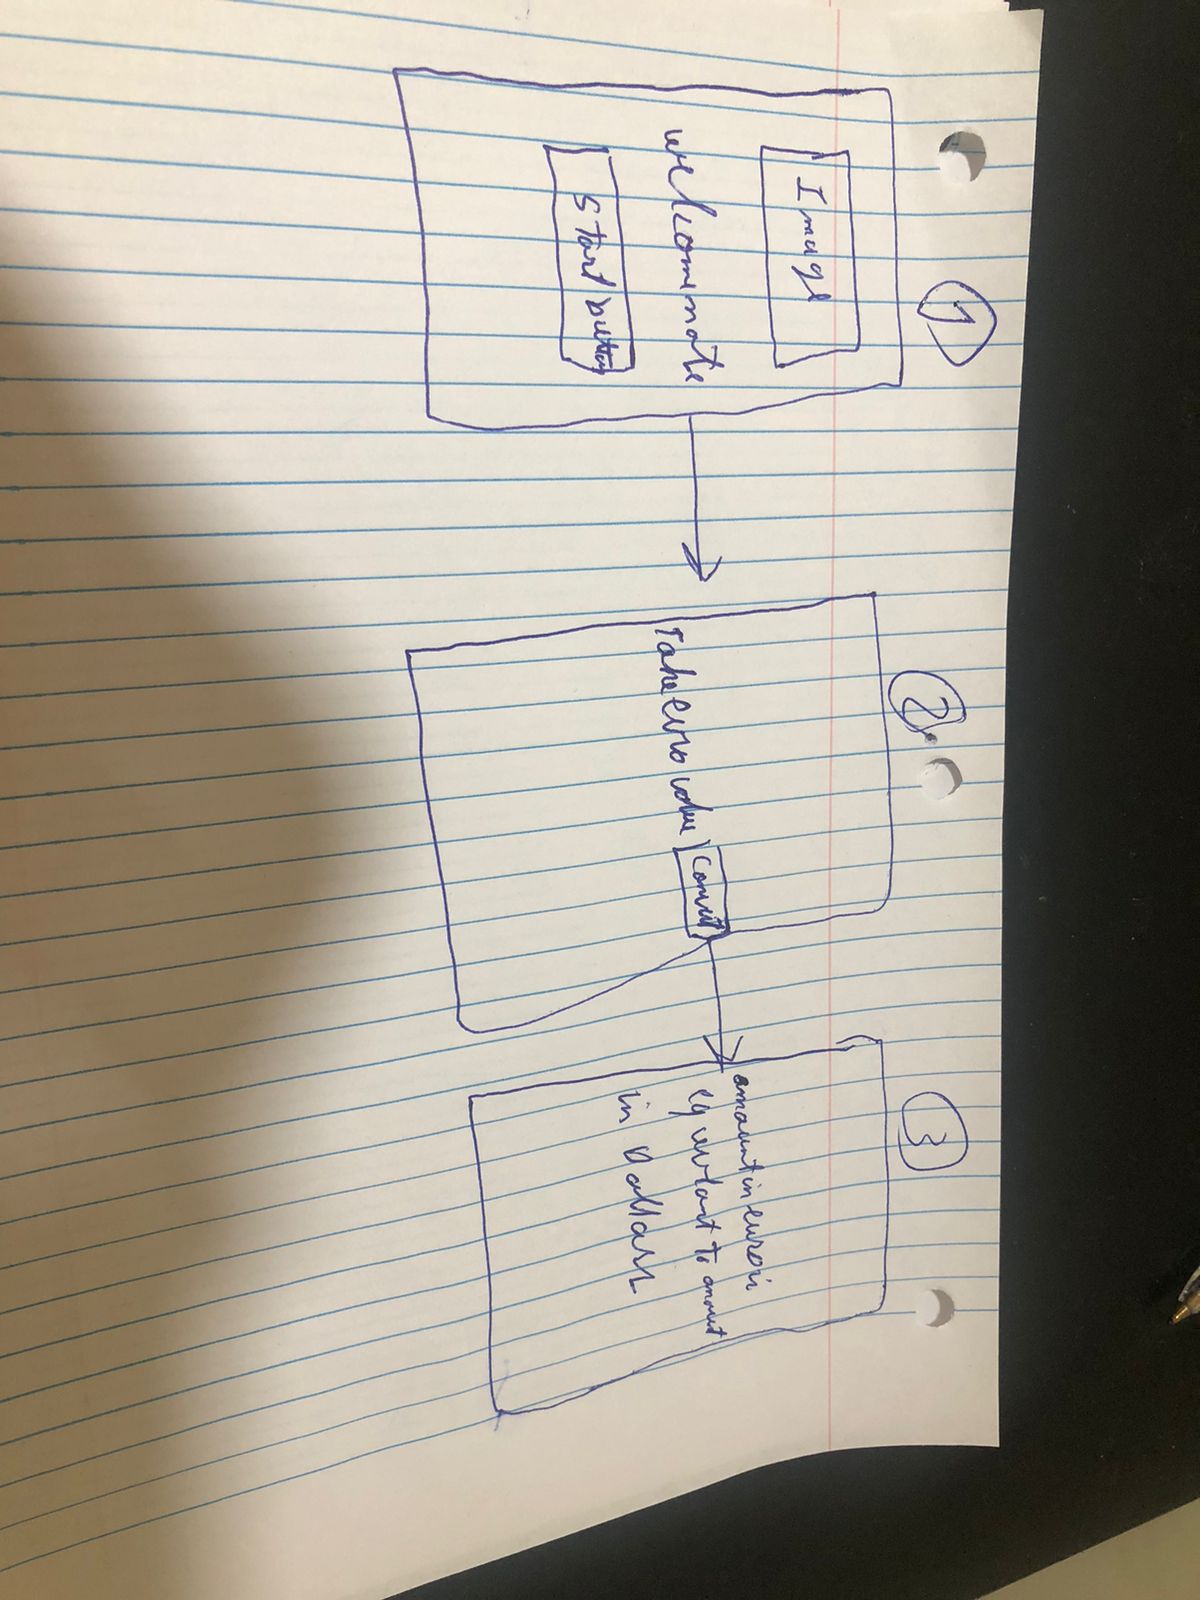 1
Image
welcome mate
Start button
2
Take euro value
Convert
3
amount in euro is
eqivlant to amout
in Dollars